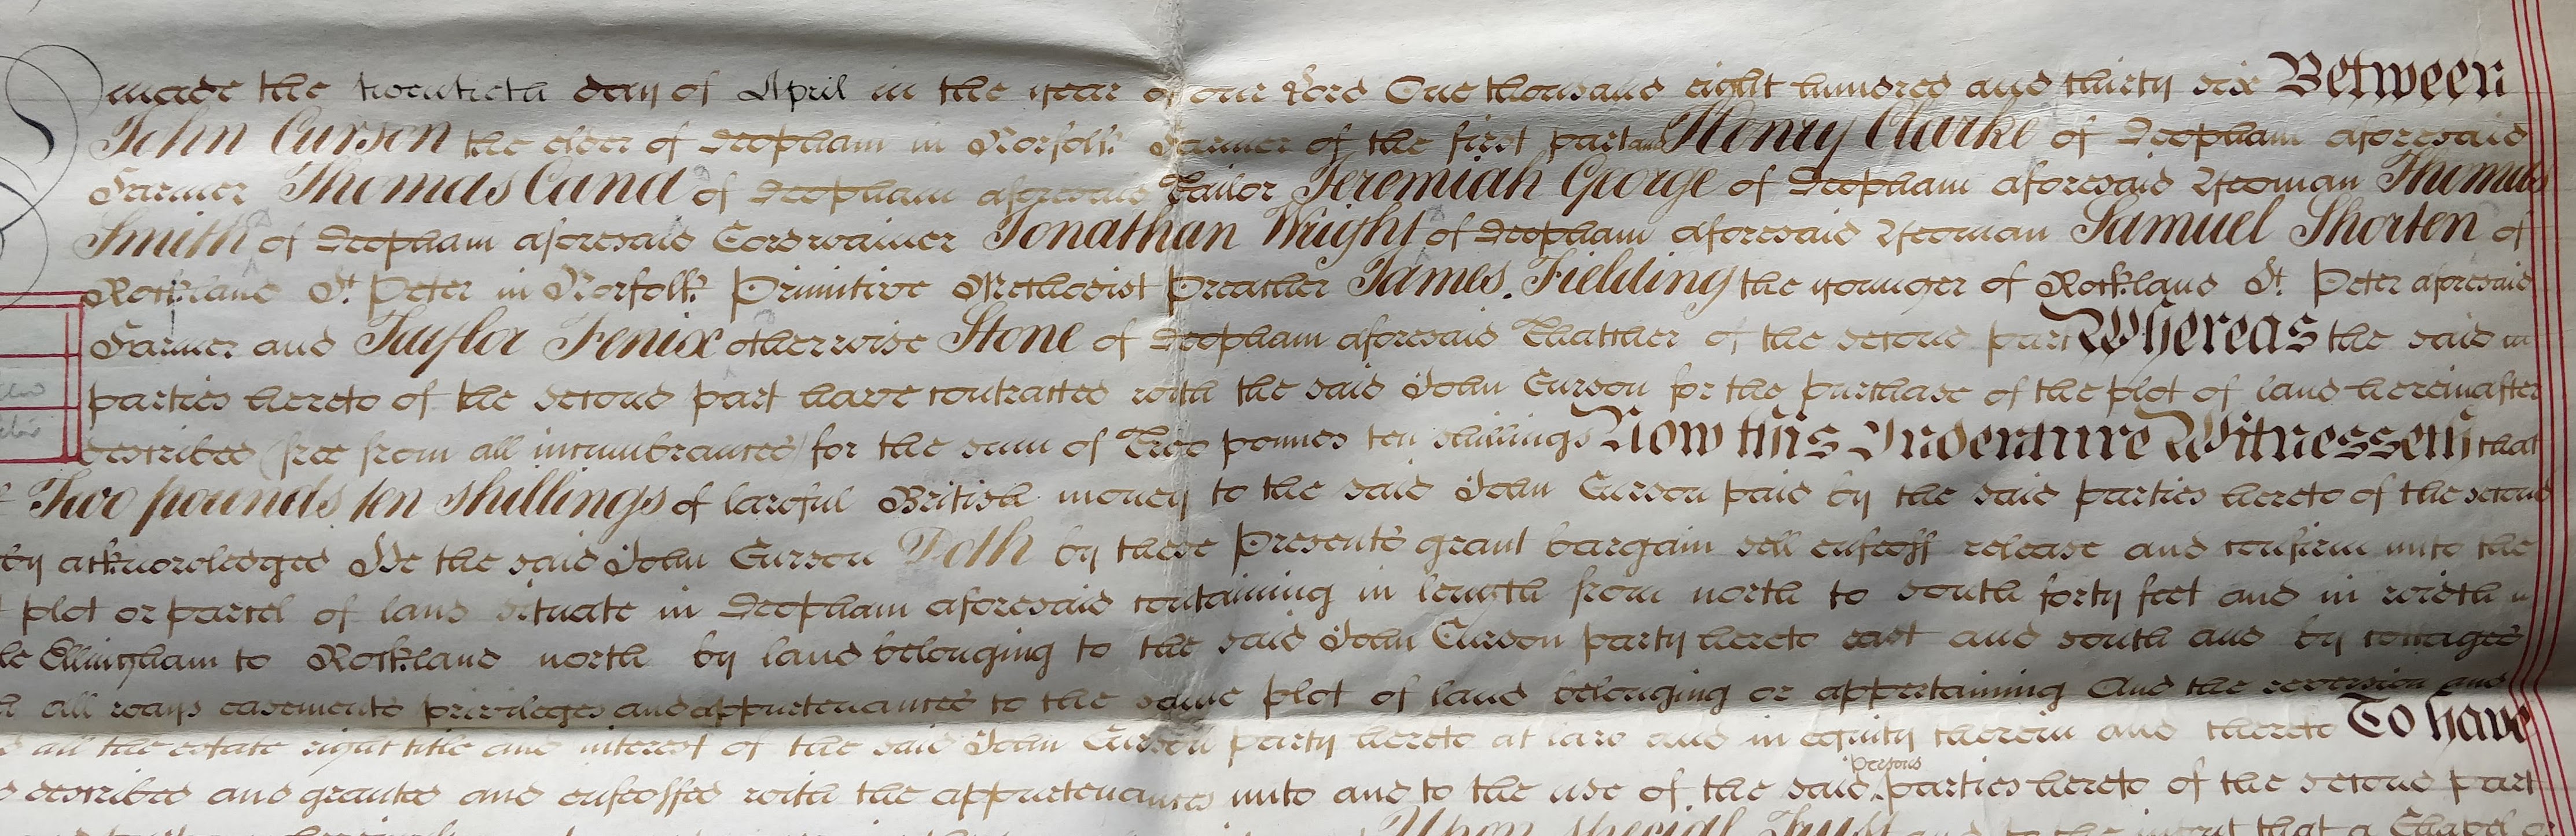 made the twentieth day of April in the year of our Lord One thousand eight hundred and thirty six Between
John Curson the elder of Deopham in Norfolk Farmer of the first part and Henry Clarke of Deopham aforesaid
Farmer Thomas Cand of Deopham aforesaid Tailor Jeremiah George of Deopham aforesaid Yeoman Thomas
Smith of Deopham aforesaid Cordwainer Jonathan Wright of Deopham aforesaid Yeoman Samuel Shorten of
Rockland St. Peter in Norfolk Primitive Methodist Preacher James Fielding the younger of Rockland St. Peter aforesaid
Farmer and Taylor Fenix otherwise Stone of Deopham aforesaid Thatcher of the second part Whereas the said
parties hereto of the second part have contracted with the said John Curson for the purchase of the plot of land hereinafter
described (free from all incumbrances) for the sum of Two pounds ten shillings Now this Indenture Witnesseth that
Two pounds ten shillings of lawful British money to the said John Curson paid by the said parties hereto of the second
by acknowledged He the said John Curson Doth by these Presents grant bargain sell enfeoff release and confirm unto the
plot or parcel of land situate in Deopham aforesaid containing in length from north to south forty feet and in width
le Ellingham to Rockland north by land belonging to the said John Curson party hereto east and south and by cottages
all ways easements privileges and appurtenances to the same plot of land belonging or appertaining And the reversion and
all the estate right title and interest of the said John Curson party hereto at law and in equity therein and thereto To have
persons
described and granted and enfeoffed with the appurtenances unto and to the use of the said parties hereto of the second part
Upon special Trust and to the intent that a Chapel or